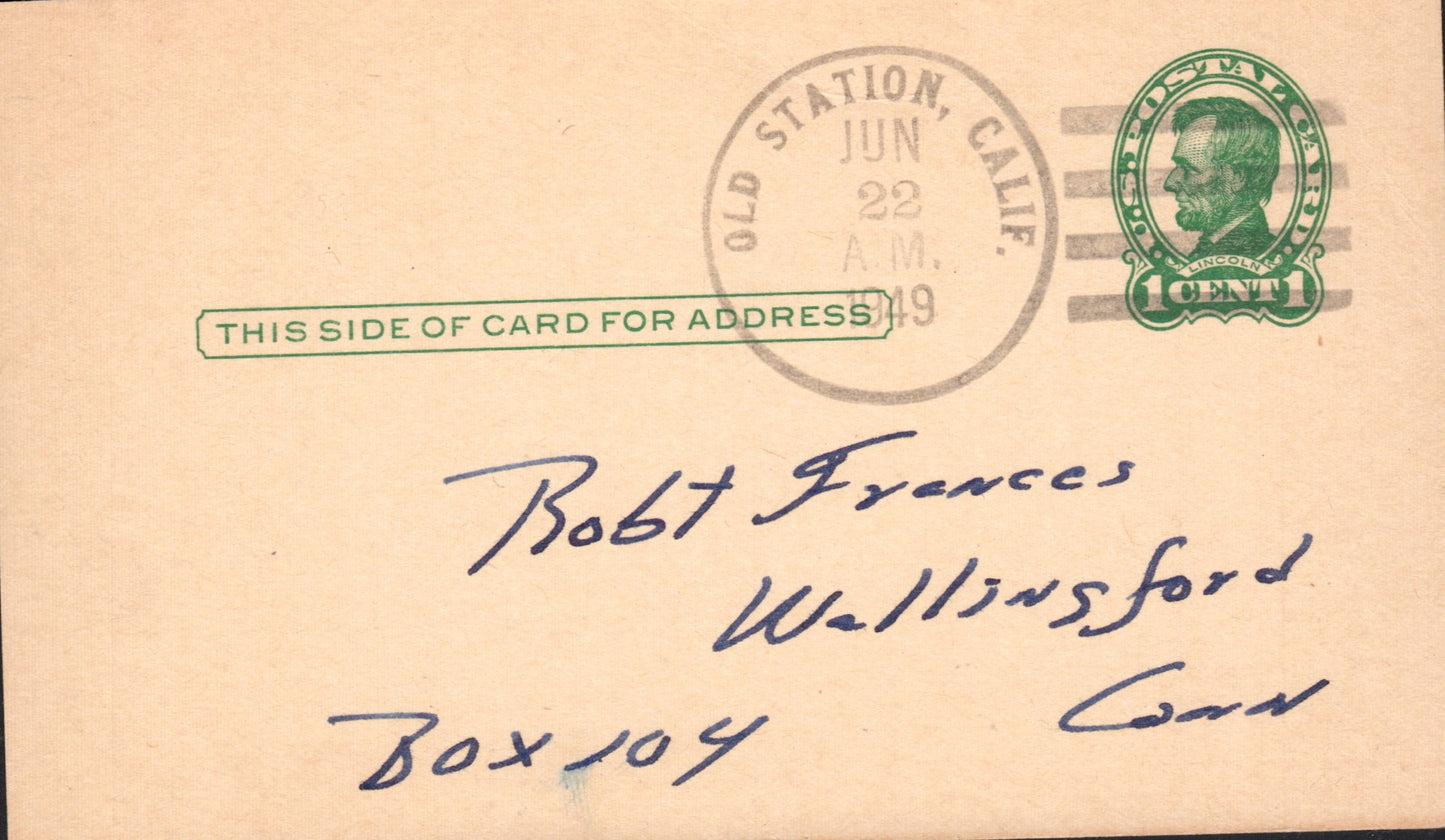 OLD STATION, CALIF.
JUN
22
A.M.
1949
U.S. POSTAL CARD
LINCOLN
1 CENT 1
THIS SIDE OF CARD FOR ADDRESS
Robt Frances
Wallingford
Conn
Box 104